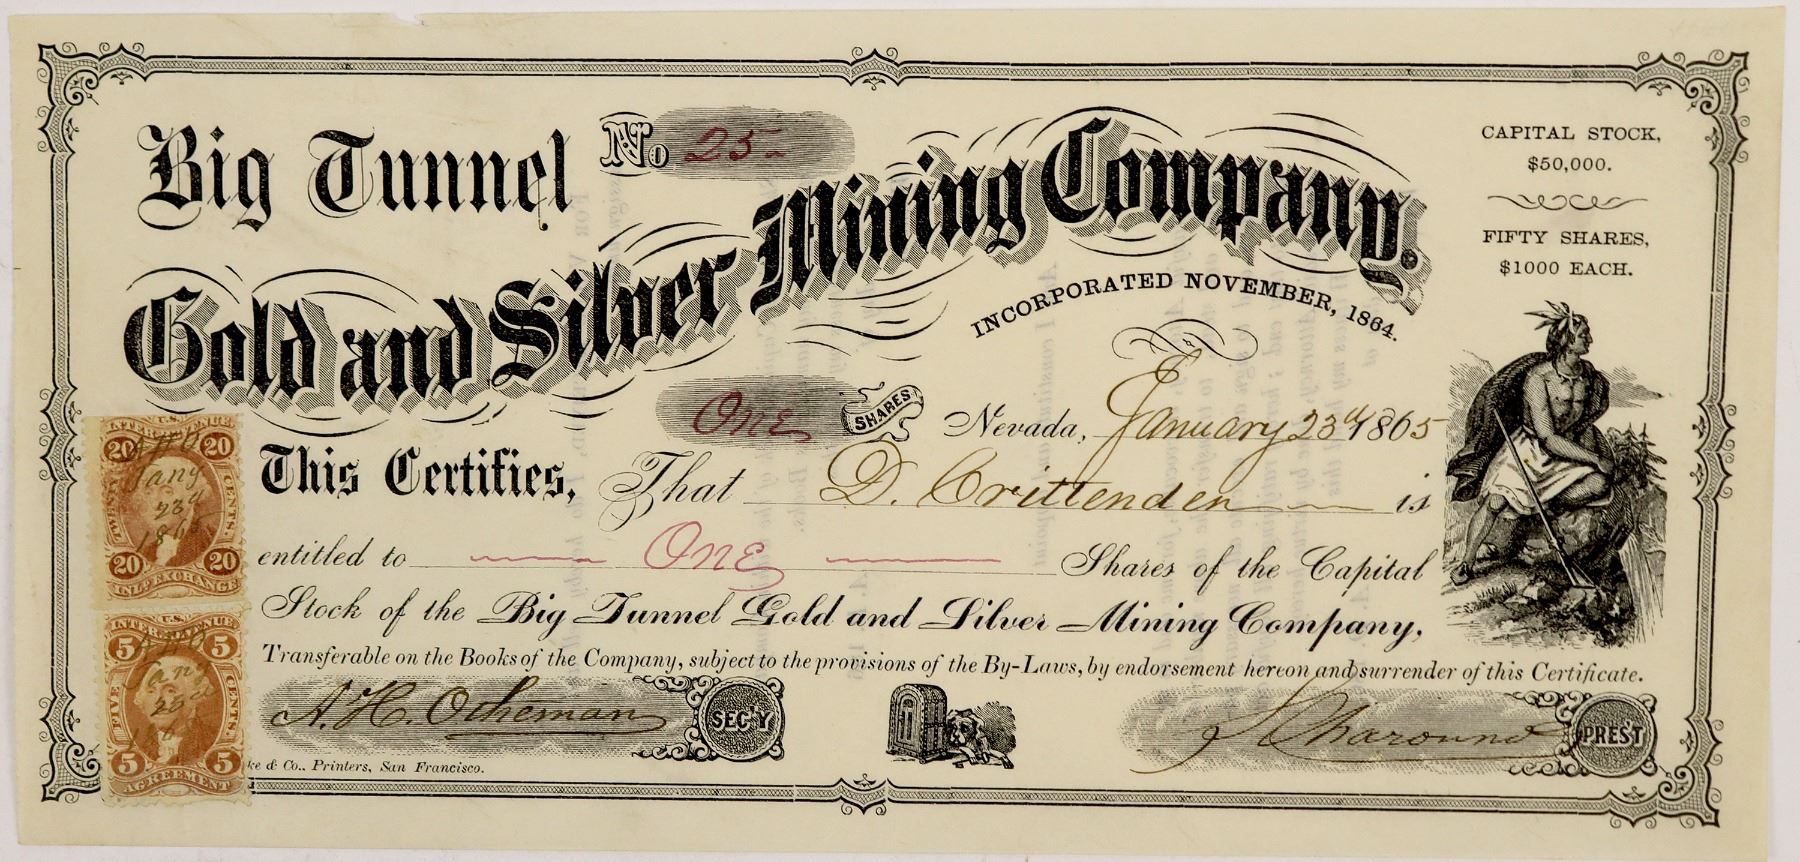 Big Tunnel
No. 25
Gold and Silver Mining Company.
INCORPORATED NOVEMBER, 1864.
CAPITAL STOCK,
$50,000.
FIFTY SHARES,
$1000 EACH.
One SHARES
Nevada, January 23d 1865
This Certifies, That D. Crittenden is
entitled to One Shares of the Capital
Stock of the Big Tunnel Gold and Silver Mining Company,
Transferable on the Books of the Company, subject to the provisions of the By-Laws, by endorsement hereon and surrender of this Certificate.
A. H. Otheman SEC'Y
PRES'T
ke & Co., Printers, San Francisco.
U.S.
INTER. REVENUE
20 20
AHO
Jany
23d
1865
TWENTY CENTS.
20 20
INL. EXCHANGE
U.S.
INTER. REVENUE
5 5
AHO
Jany
23d
FIVE CENTS.
5 5
AGREEMENT